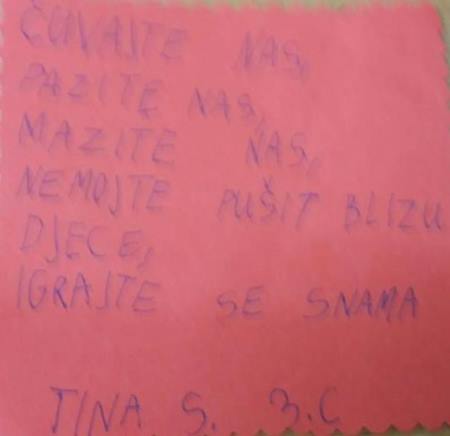 ČUVAJTE NAS,
PAZITE NAS,
MAZITE NAS,
NEMOJTE PUŠIT BLIZU
DJECE,
IGRAJTE SE SNAMA
TINA S.. 3.C